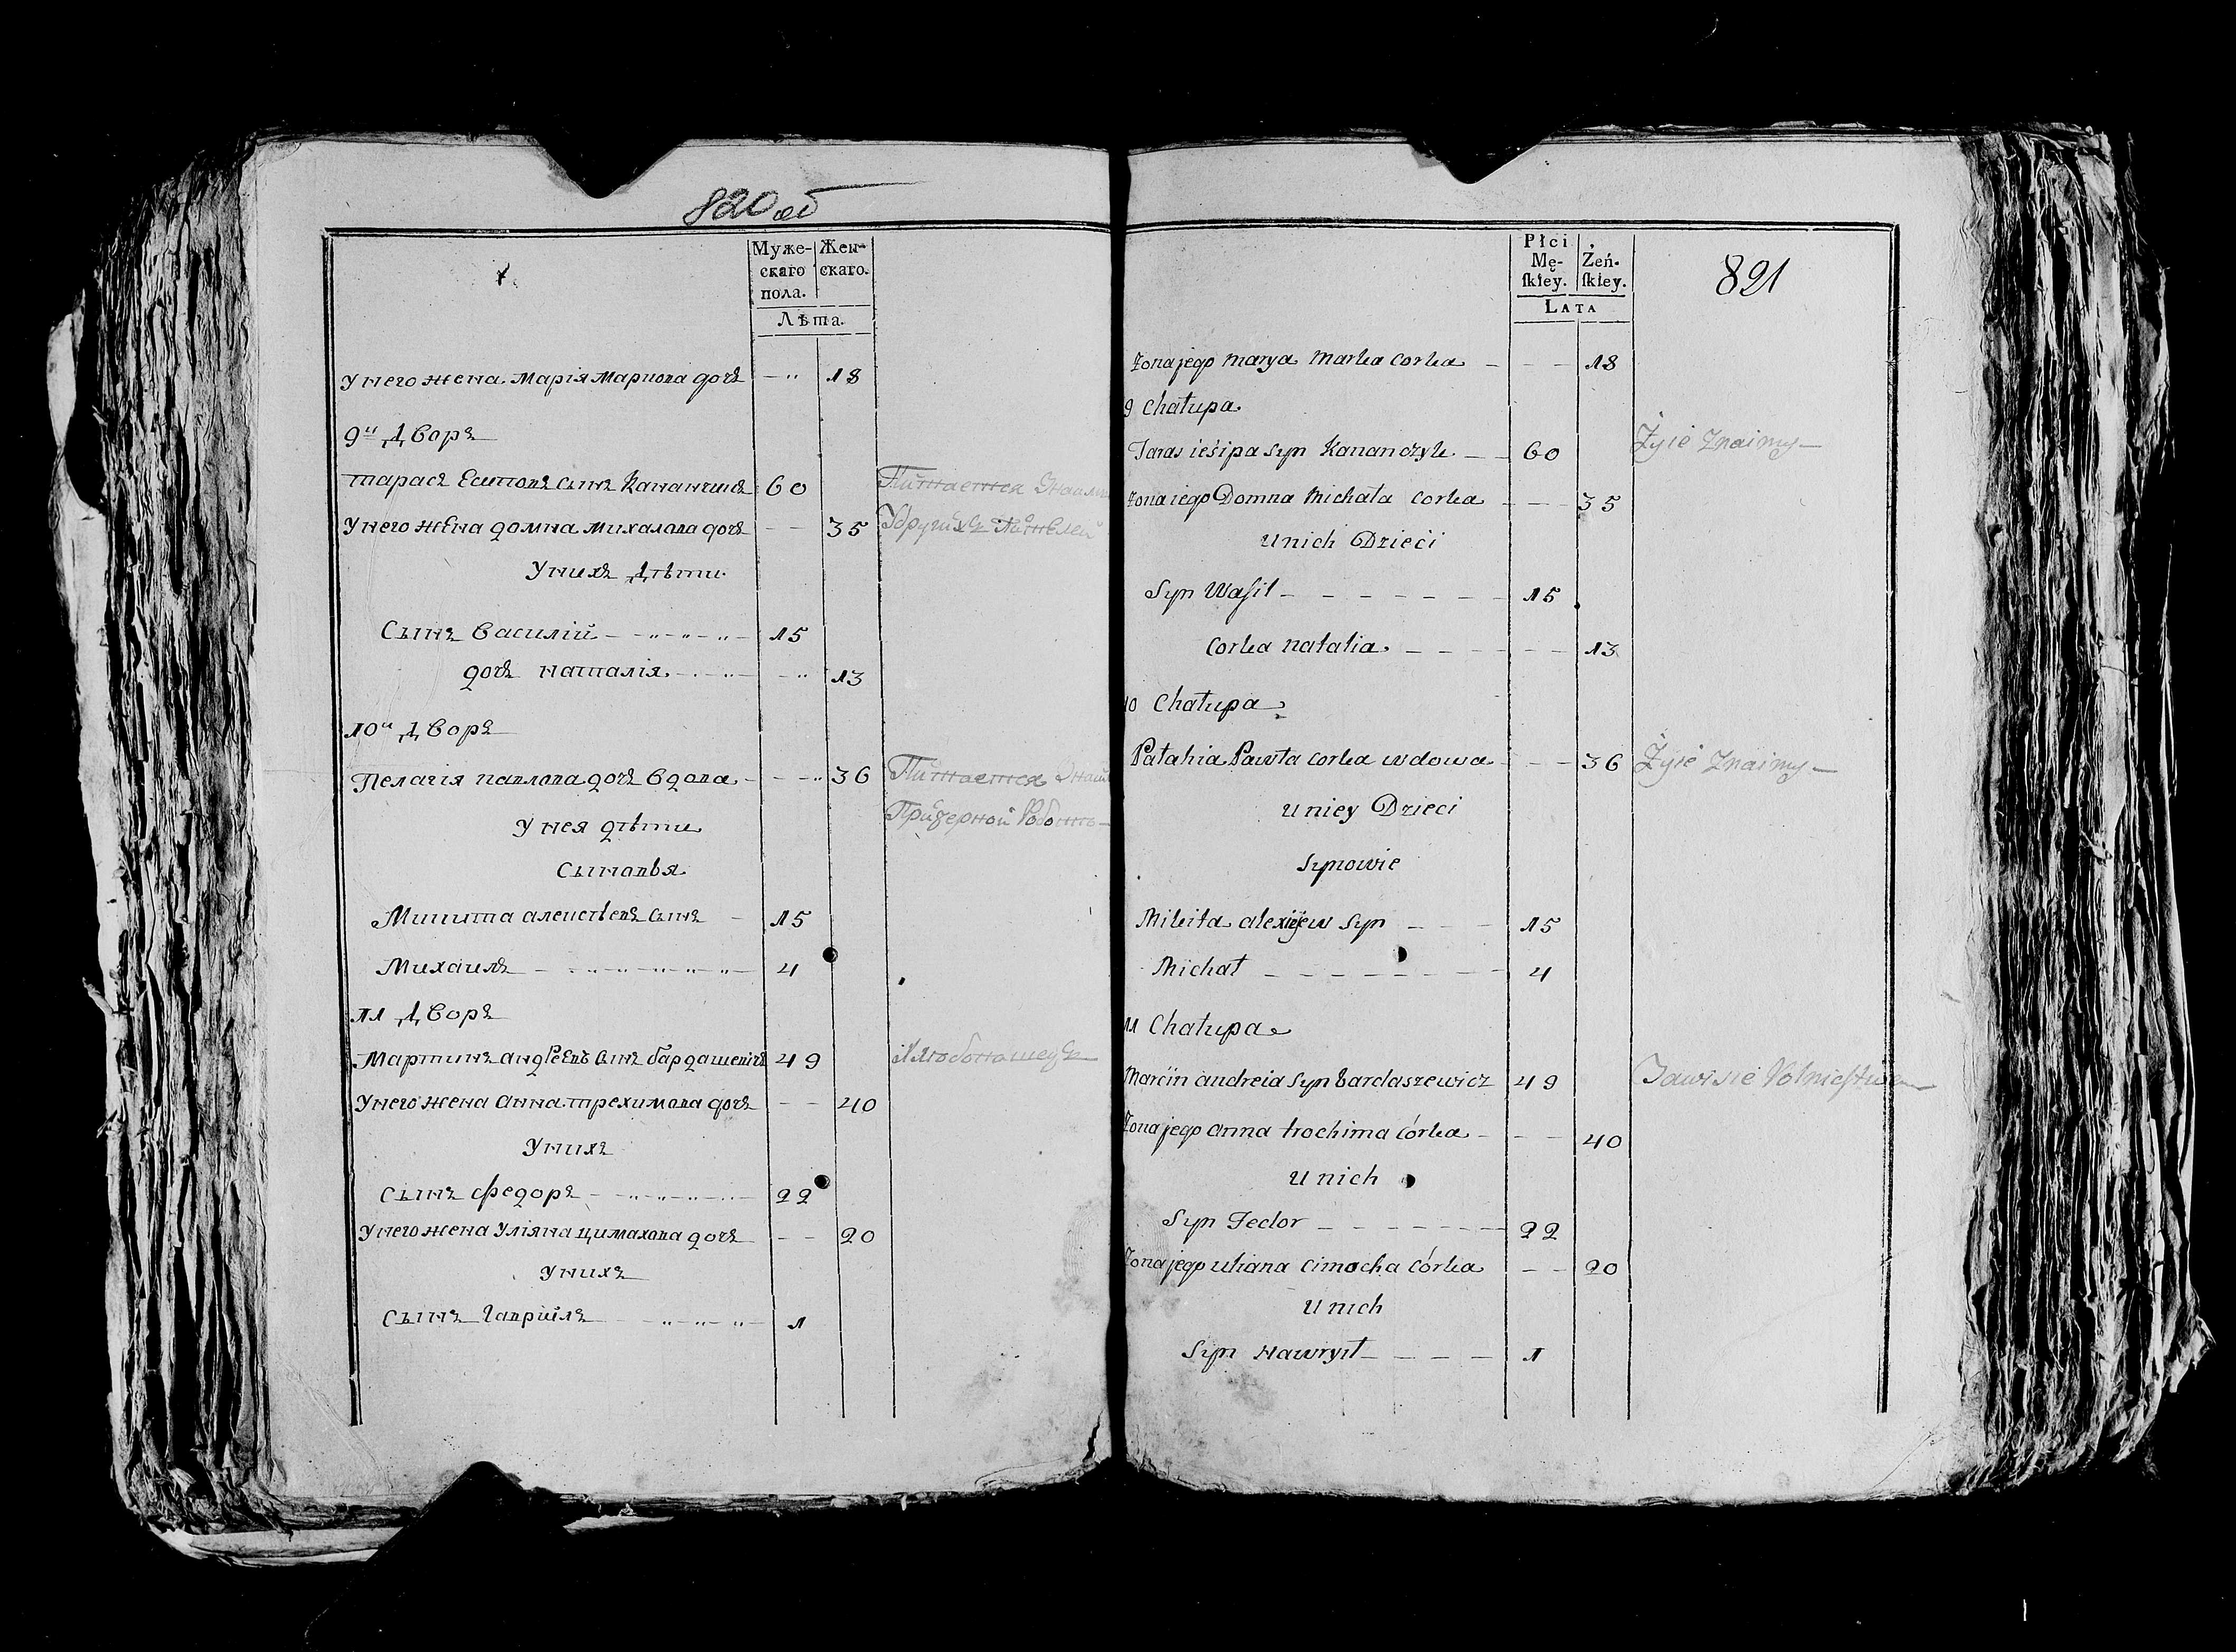 820 об
Муже-
скаго
пола.
Жен-
скаго.
Лѣта.
У него жена Марія Маркова дочь — 18
9й Дворъ
Тарасъ Есиповъ сынъ Кананчикъ 60 Питается Знаим
У него жена Домна Михалова дочь — — 35 У других
У нихъ Дѣти
Сынъ Василій — 15
дочь Наталія — 13
10й Дворъ
Пелагія Павлова дочь вдова — 36 Питается
У нея дѣти
Сыновья
Микита Алексѣевъ сынъ — 15
Михаилъ — 4
11 Дворъ
Мартинъ Андреевъ сынъ Бардашевичъ 49
У него жена Анна Трехимова дочь — — 40
У нихъ
Сынъ Федоръ — 22
У него жена Уліяна Цимахова дочь — — 20
У нихъ
Сынъ Гаврійлъ — 1
Płci
Mę-
ſkiey.
Żeń-
ſkiey.
LATA
821
Żona jego Marya Marka Corka — — — 18
9 Chałupa
Taras ieśipa Syn Kananczyk — — 60 Żyie Znaimy —
Żona iego Domna Michała Corka — — — 35
U nich Dzieci
Syn Waſil — — — — — — — 15
Corka Natalia — — — — — — 13
10 Chałupa
Pałahia Pawła corka wdowa — — — 36 Żyie Znaimy —
U niey Dzieci
Synowie
Mikita alexiejew Syn — — — 15
Michał — — — — — — — — 4
11 Chałupa
Marcin andreia Syn bardaszewicz 49 Bawi sie Rolnictwem
Żona jego anna trochima Córka — — — 40
U nich
Syn Fedor — — — — — — — 22
Żona jego uliana Cimocha Córka — — 20
U nich
Syn Hawrył — — — — 1